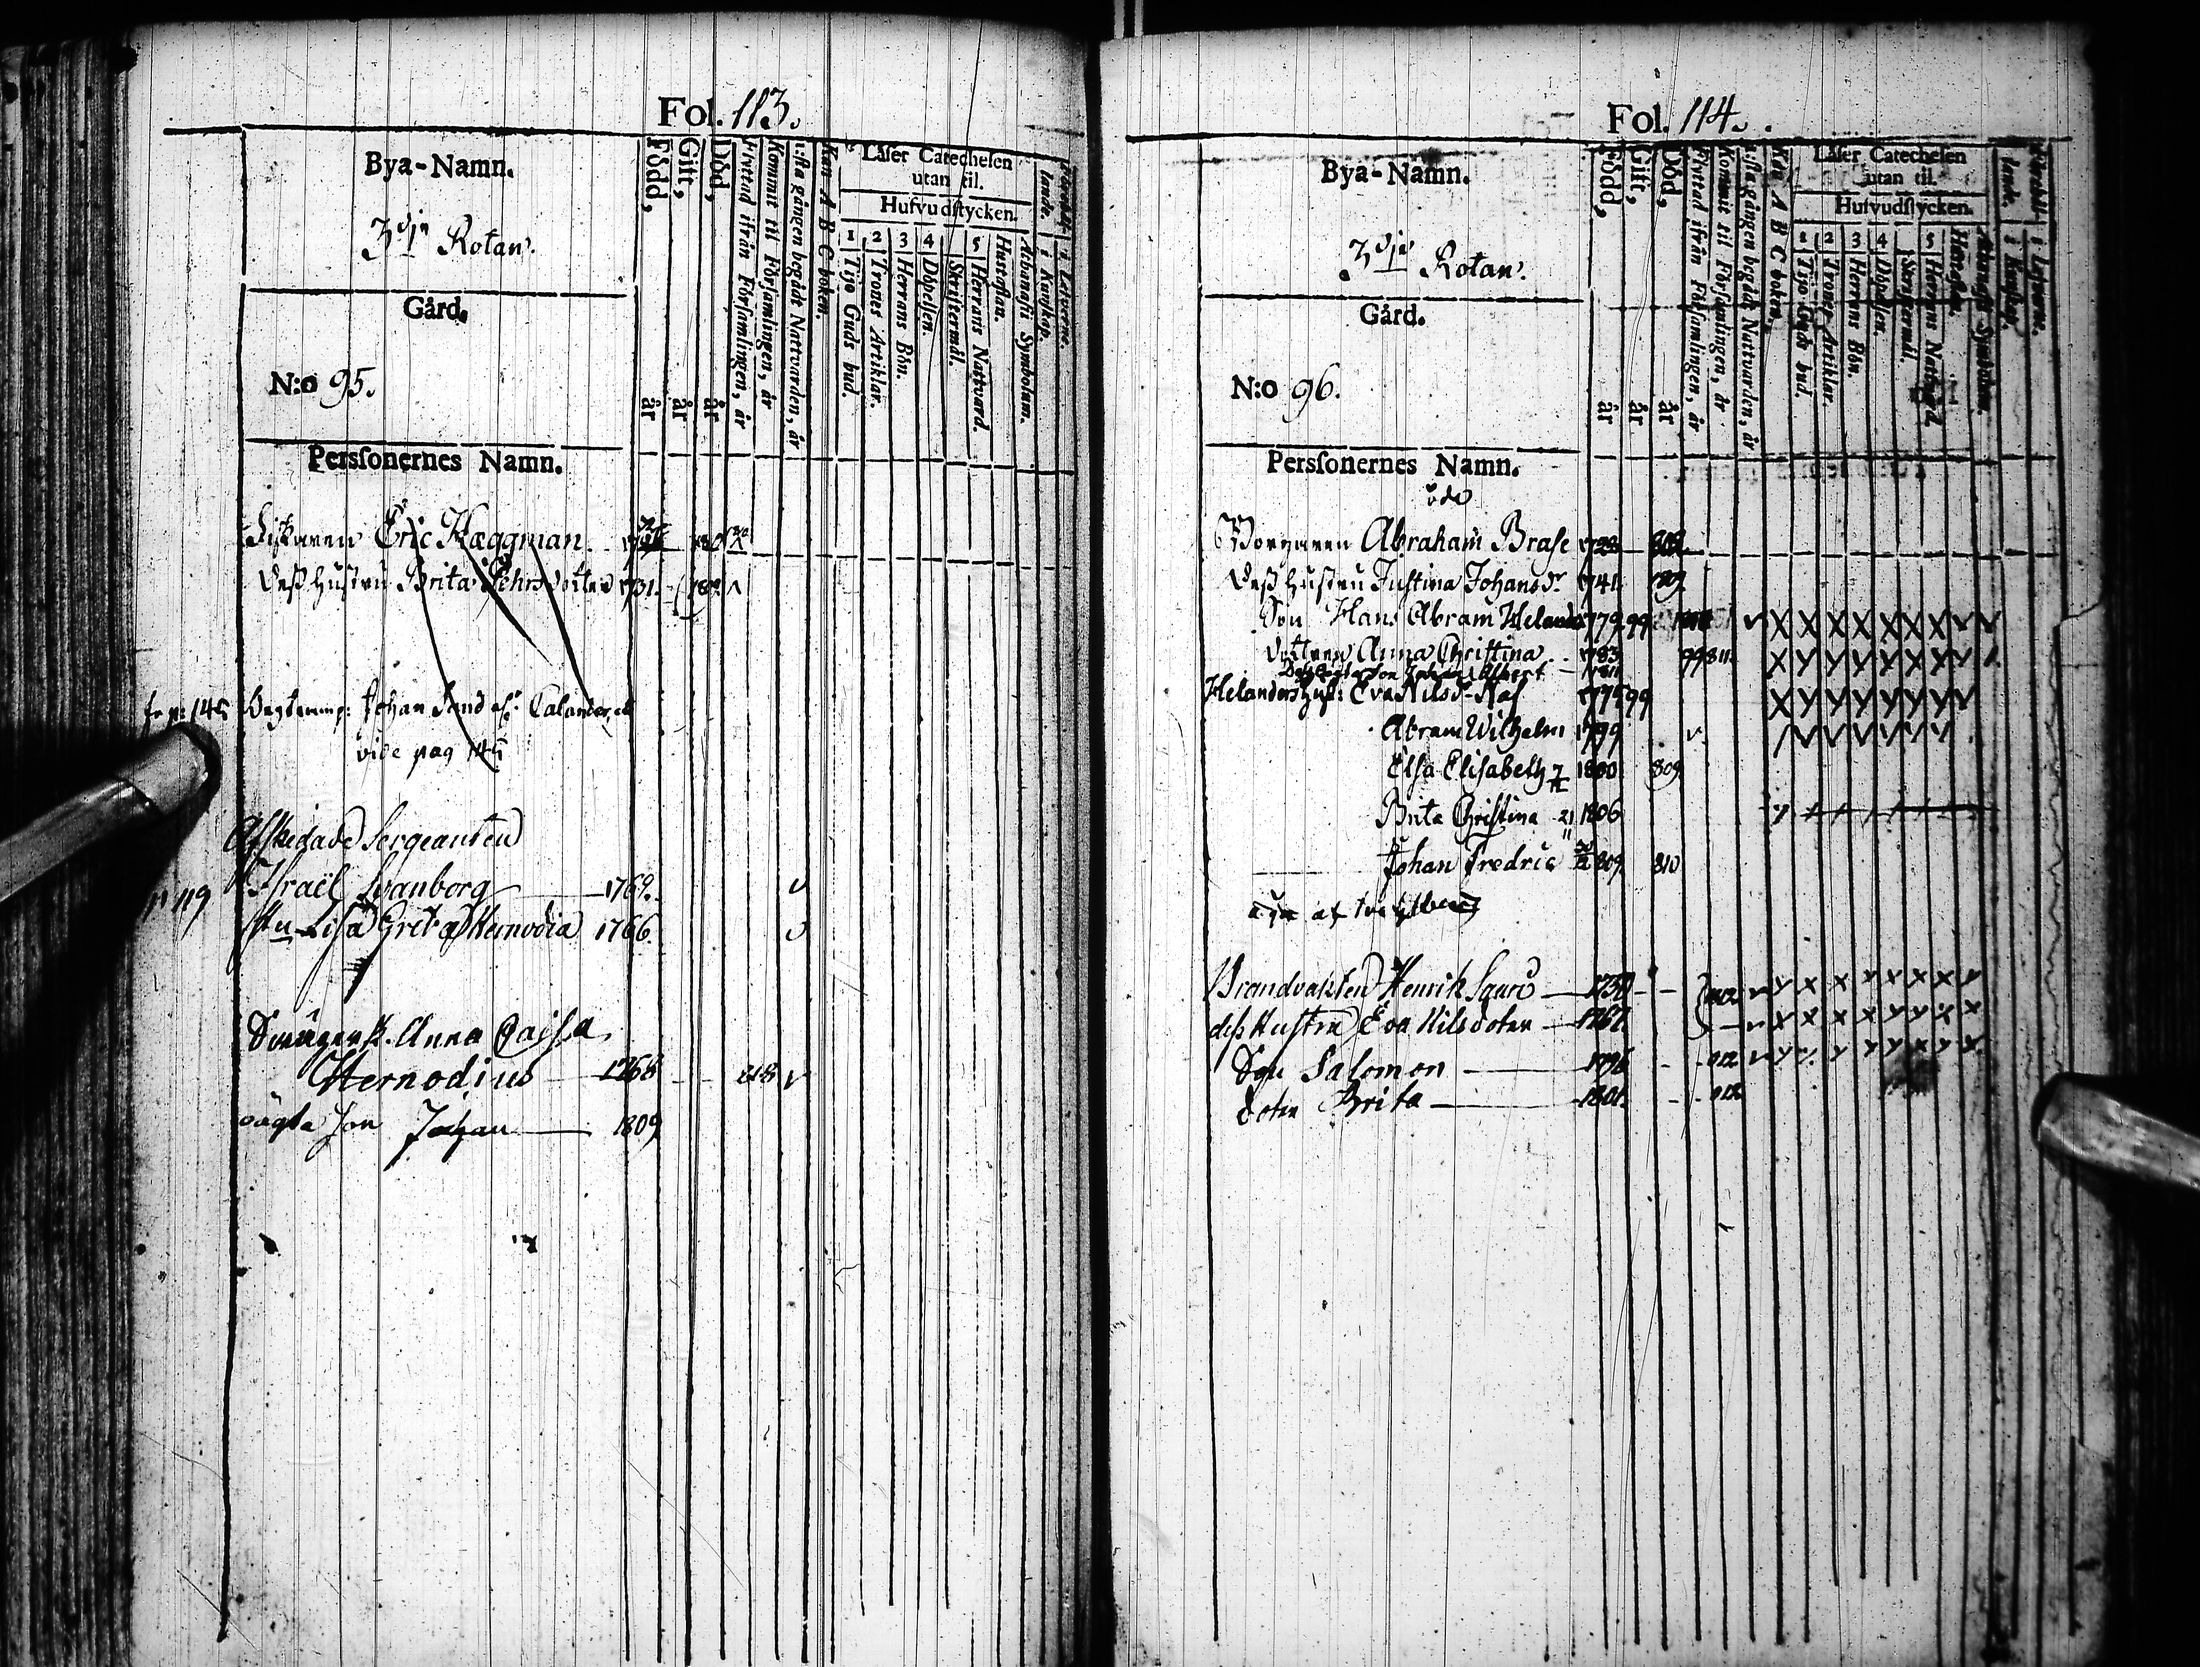 Fol. 113.
Bya-Namn.
3dje Rotan.
Gård.
N:o 95.
Perſonernes Namn.
Född, år
Gift, år
Död, år
Flyttad ifrån Förſamlingen, år
Kommit til Förſamlingen, år
1:ſta gången begådt Nattvarden, år
Kan A B C boken.
Läſer Catecheſen utan til.
Hufvudſtycken.
1 Tijo Guds bud.
2 Trones Artiklar.
3 Herrans Bön.
4 Döpelſen.
Skriftermål.
5 Herrans Nattvard.
Huſtaflan.
Athanaſii Symbolum.
i Kunſkap.
i Lefverne.
Fiſkaren Eric Hæggman
Deſs huſtru Brita Pehrsdotter 1731.
fr p: 145 Johan Calander
vide pag 145
Afskedade Sergeanten
p 119 Israël Svanborg 1769.
Hu Lisa Greta Hernodia 1766.
Svägersk. Anna Caisa
Hernodius 1768 818 v
oägta Son Johan 1809
Fol. 114.
Bya-Namn.
3dje Rotan.
Gård.
N:o 96.
Perſonernes Namn.
Född, år
Gift, år
Död, år
Flyttad ifrån Förſamlingen, år
Kommit til Förſamlingen, år
1:ſta gången begådt Nattvarden, år
Kan A B C boken.
Läſer Catecheſen utan til.
Hufvudſtycken.
1 Tijo Guds bud.
2 Trones Artiklar.
3 Herrans Bön.
4 Döpelſen.
Skriftermål.
5 Herrans Nattvard
Huſtaflan.
Athanaſii Symbolum.
i Kunſkap.
i Lefverne.
öde
Borgaren Abraham Brase 1728
Deſs huſtru Justina Johansdr. 1741 809
Son Hans Abram Helander 1779 99
dottren Anna Christina 1783 99 811
Johan Albert 1811
Helanders hust: Eva Nilsdr 1775 99
Abram Wilhelm 1799
Elsa Elisabeth 1800 809
Brita Christina 21/11 1806
Johan Fredric 809 810
Brandvakten Henrik 812
deſs Hustru Eva Nilsdoter 1767
Son Salomon 1796 812
doter Brita 1801 812